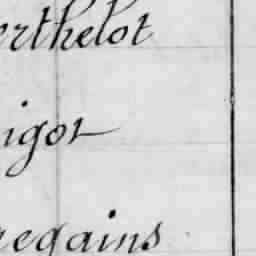 erthelot
igot
regains